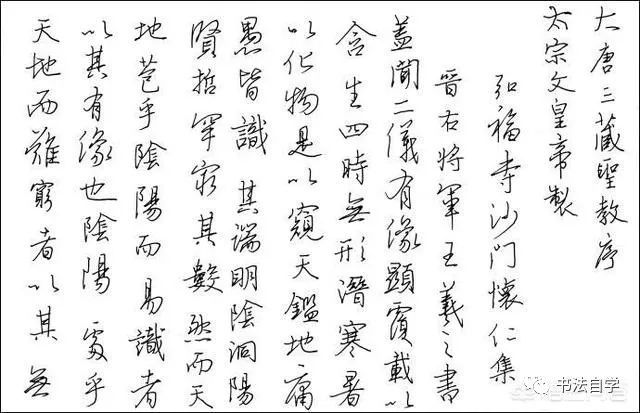 大唐三藏聖教序
太宗文皇帝製
弘福寺沙門懷仁集
晉右將軍王羲之書
蓋聞二儀有像顯覆載以
含生四時無形潛寒暑
以化物是以窺天鑑地庸
愚皆識其端明陰洞陽
賢哲罕窮其數然而天
地苞乎陰陽而易識者
以其有像也陰陽處乎
天地而難窮者以其無
书法自学